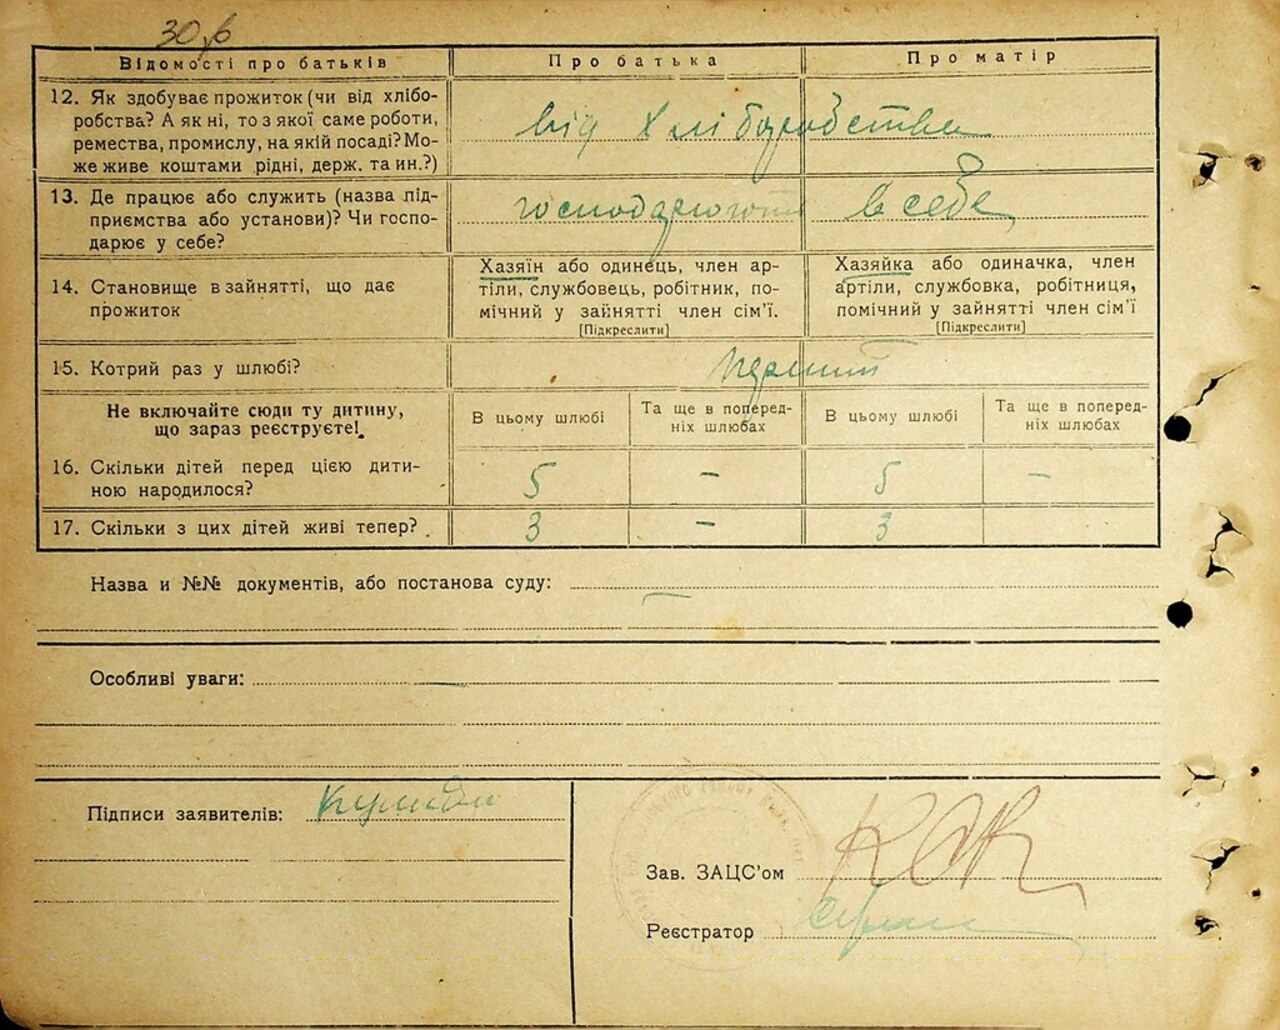 30
Відомості про батьків Про батька Про матір
12. Як здобуває прожиток (чи від хлібо-
робства? А як ні, то з якої саме роботи,
ремества, промислу, на якій посаді? Мо-
же живе коштами рідні, держ. та ин.?)
від Хліборобства
13. Де працює або служить (назва під-
приємства або установи)? Чи госпо-
дарює у себе?
господарюють в себе
14. Становище в зайнятті, що дає
прожиток
Хазяїн або одинець, член ар-
тіли, службовець, робітник, по-
мічний у зайнятті член сім'ї.
[Підкреслити]
Хазяйка або одиначка, член
артіли, службовка, робітниця,
помічний у зайнятті член сім'ї
[Підкреслити]
15. Котрий раз у шлюбі?
перший
Не включайте сюди ту дитину,
що зараз реєструєте!
В цьому шлюбі
Та ще в поперед-
ніх шлюбах
В цьому шлюбі
Та ще в поперед-
ніх шлюбах
16. Скільки дітей перед цією дити-
ною народилося?
5 – 5 –
17. Скільки з цих дітей живі тепер?
3 – 3
Назва и №№ документів, або постанова суду: —
Особливі уваги: —
Підписи заявителів:
Зав. ЗАЦС'ом
Реєстратор